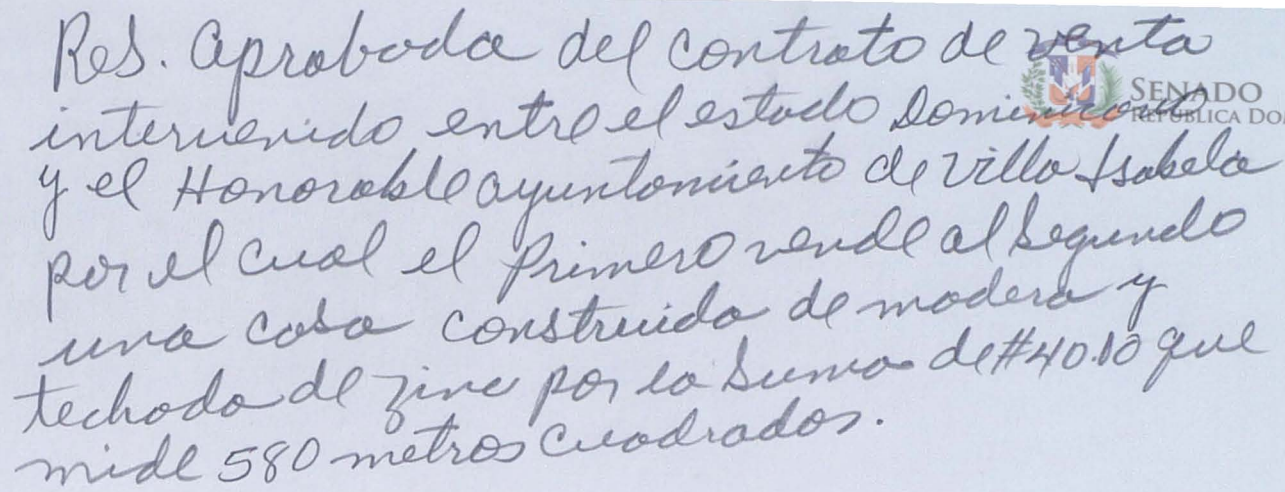 Res. aprobada del contrato de venta
intervenido entre el estado Dominicano
y el Honorable ayuntamiento de Villa Isabela
por el cual el Primero vende al Segundo
una casa construida de madera y
techada de zinc por la Suma de #40.10 que
mide 580 metros cuadrados.
SENADO
REPÚBLICA DOM